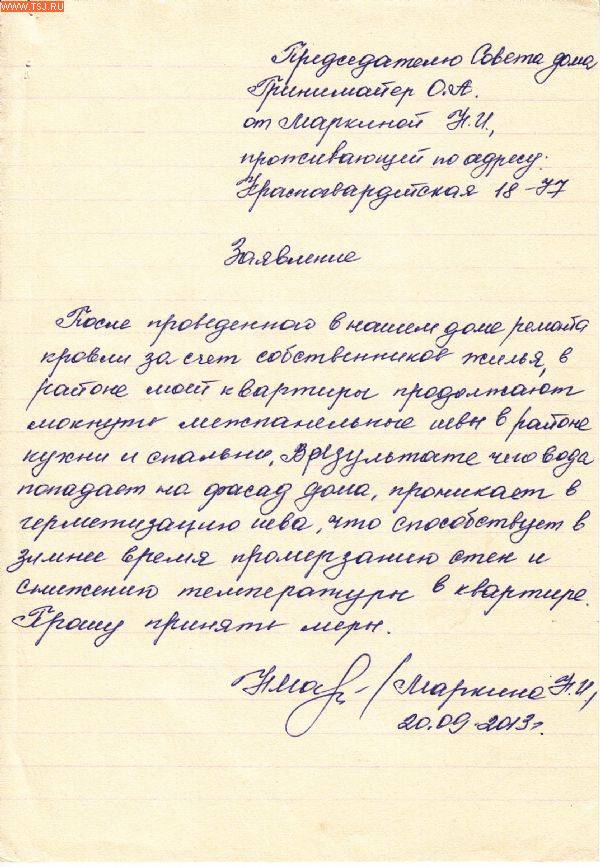 WWW.TSJ.RU
Председателю Совета дома
Гринимайер О.А.
от Маркиной Н.И.,
проживающей по адресу:
Красногвардейская 18-77
Заявление
После проведенного в нашем доме ремонта
кровли за счет собственников жилья, в
районе моей квартиры продолжают
мокнуть межпанельные швы в районе
кухни и спальни, в результате чего вода
попадает на фасад дома, проникает в
герметизацию шва, что способствует в
зимнее время промерзанию стен и
снижению температуры в квартире.
Прошу принять меры.
/Маркина Н.И./
20.09.2013г.